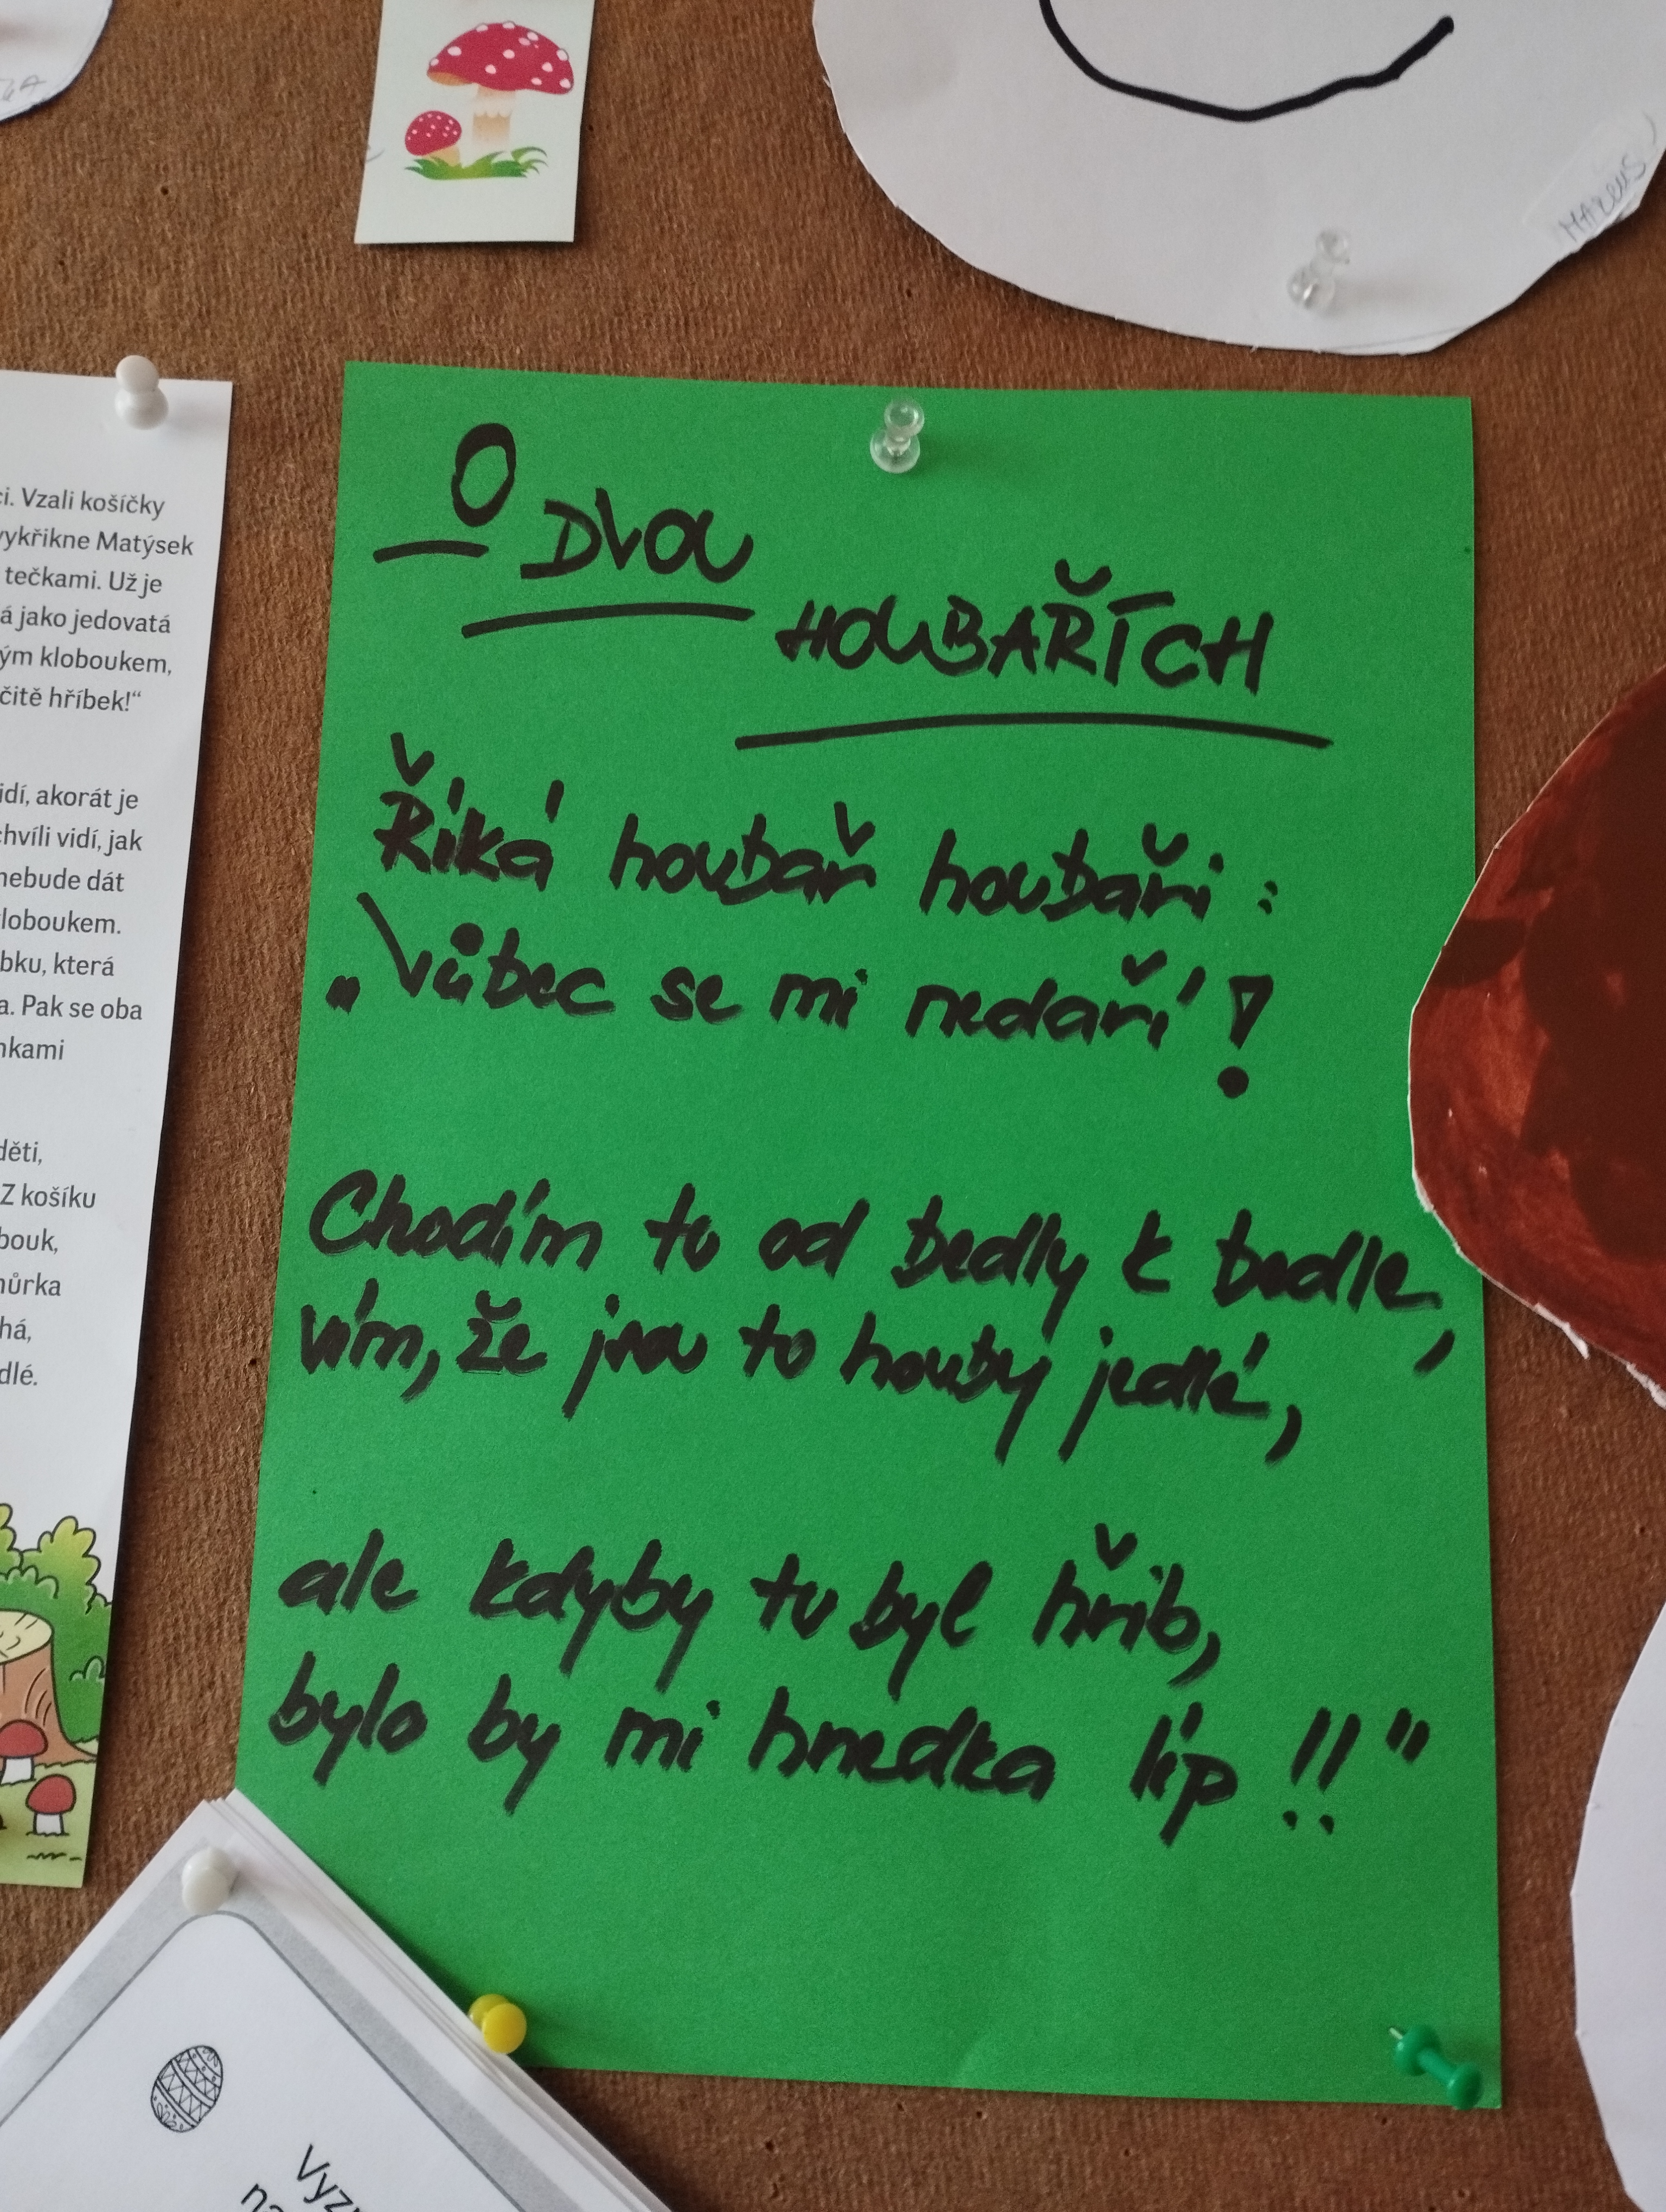 O DVOU
HOUBAŘÍCH
Říká houbař houbaři:
„Vůbec se mi nedaří!
Chodím tu od bedly k bedle,
vím, že jsou to houby jedlé,
ale kdyby tu byl hřib,
bylo by mi hnedka líp!!"
MARCUS
ci. Vzali košíčky
vykřikne Matýsek
tečkami. Už je
á jako jedovatá
ým kloboukem,
čitě hříbek!“
idí, akorát je
chvíli vidí, jak
nebude dát
kloboukem.
bku, která
a. Pak se oba
nkami
děti,
Z košíku
bouk,
hůrka
há,
dlé.
Vyz
na